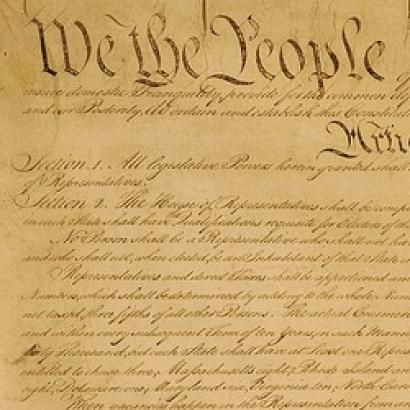 We the People
insure domestic Tranquility, provide for the common
and our Posterity, do ordain and establish this Constitut
Artic
Section. 1. All legislative Powers herein granted shall
of Representatives.
Section. 2. The House of Representatives shall be comp
in each State shall have Qualifications requisite for Electors of the
No Person shall be a Representative who shall not ha
and who shall not, when elected, be an Inhabitant of that State
Representatives and direct Taxes shall be apportioned am
Numbers, which shall be determined by adding to the whole Num
not taxed, three fifths of all other Persons. The actual Enumer
and within every subsequent Term of ten Years, in such Mann
thirty Thousand, but each State shall have at Least one Repres
entitled to chuse three, Massachusetts eight, Rhode Island an
eight, Delaware one, Maryland six, Virginia ten, North Caro
When vacancies happen in the Representation from an